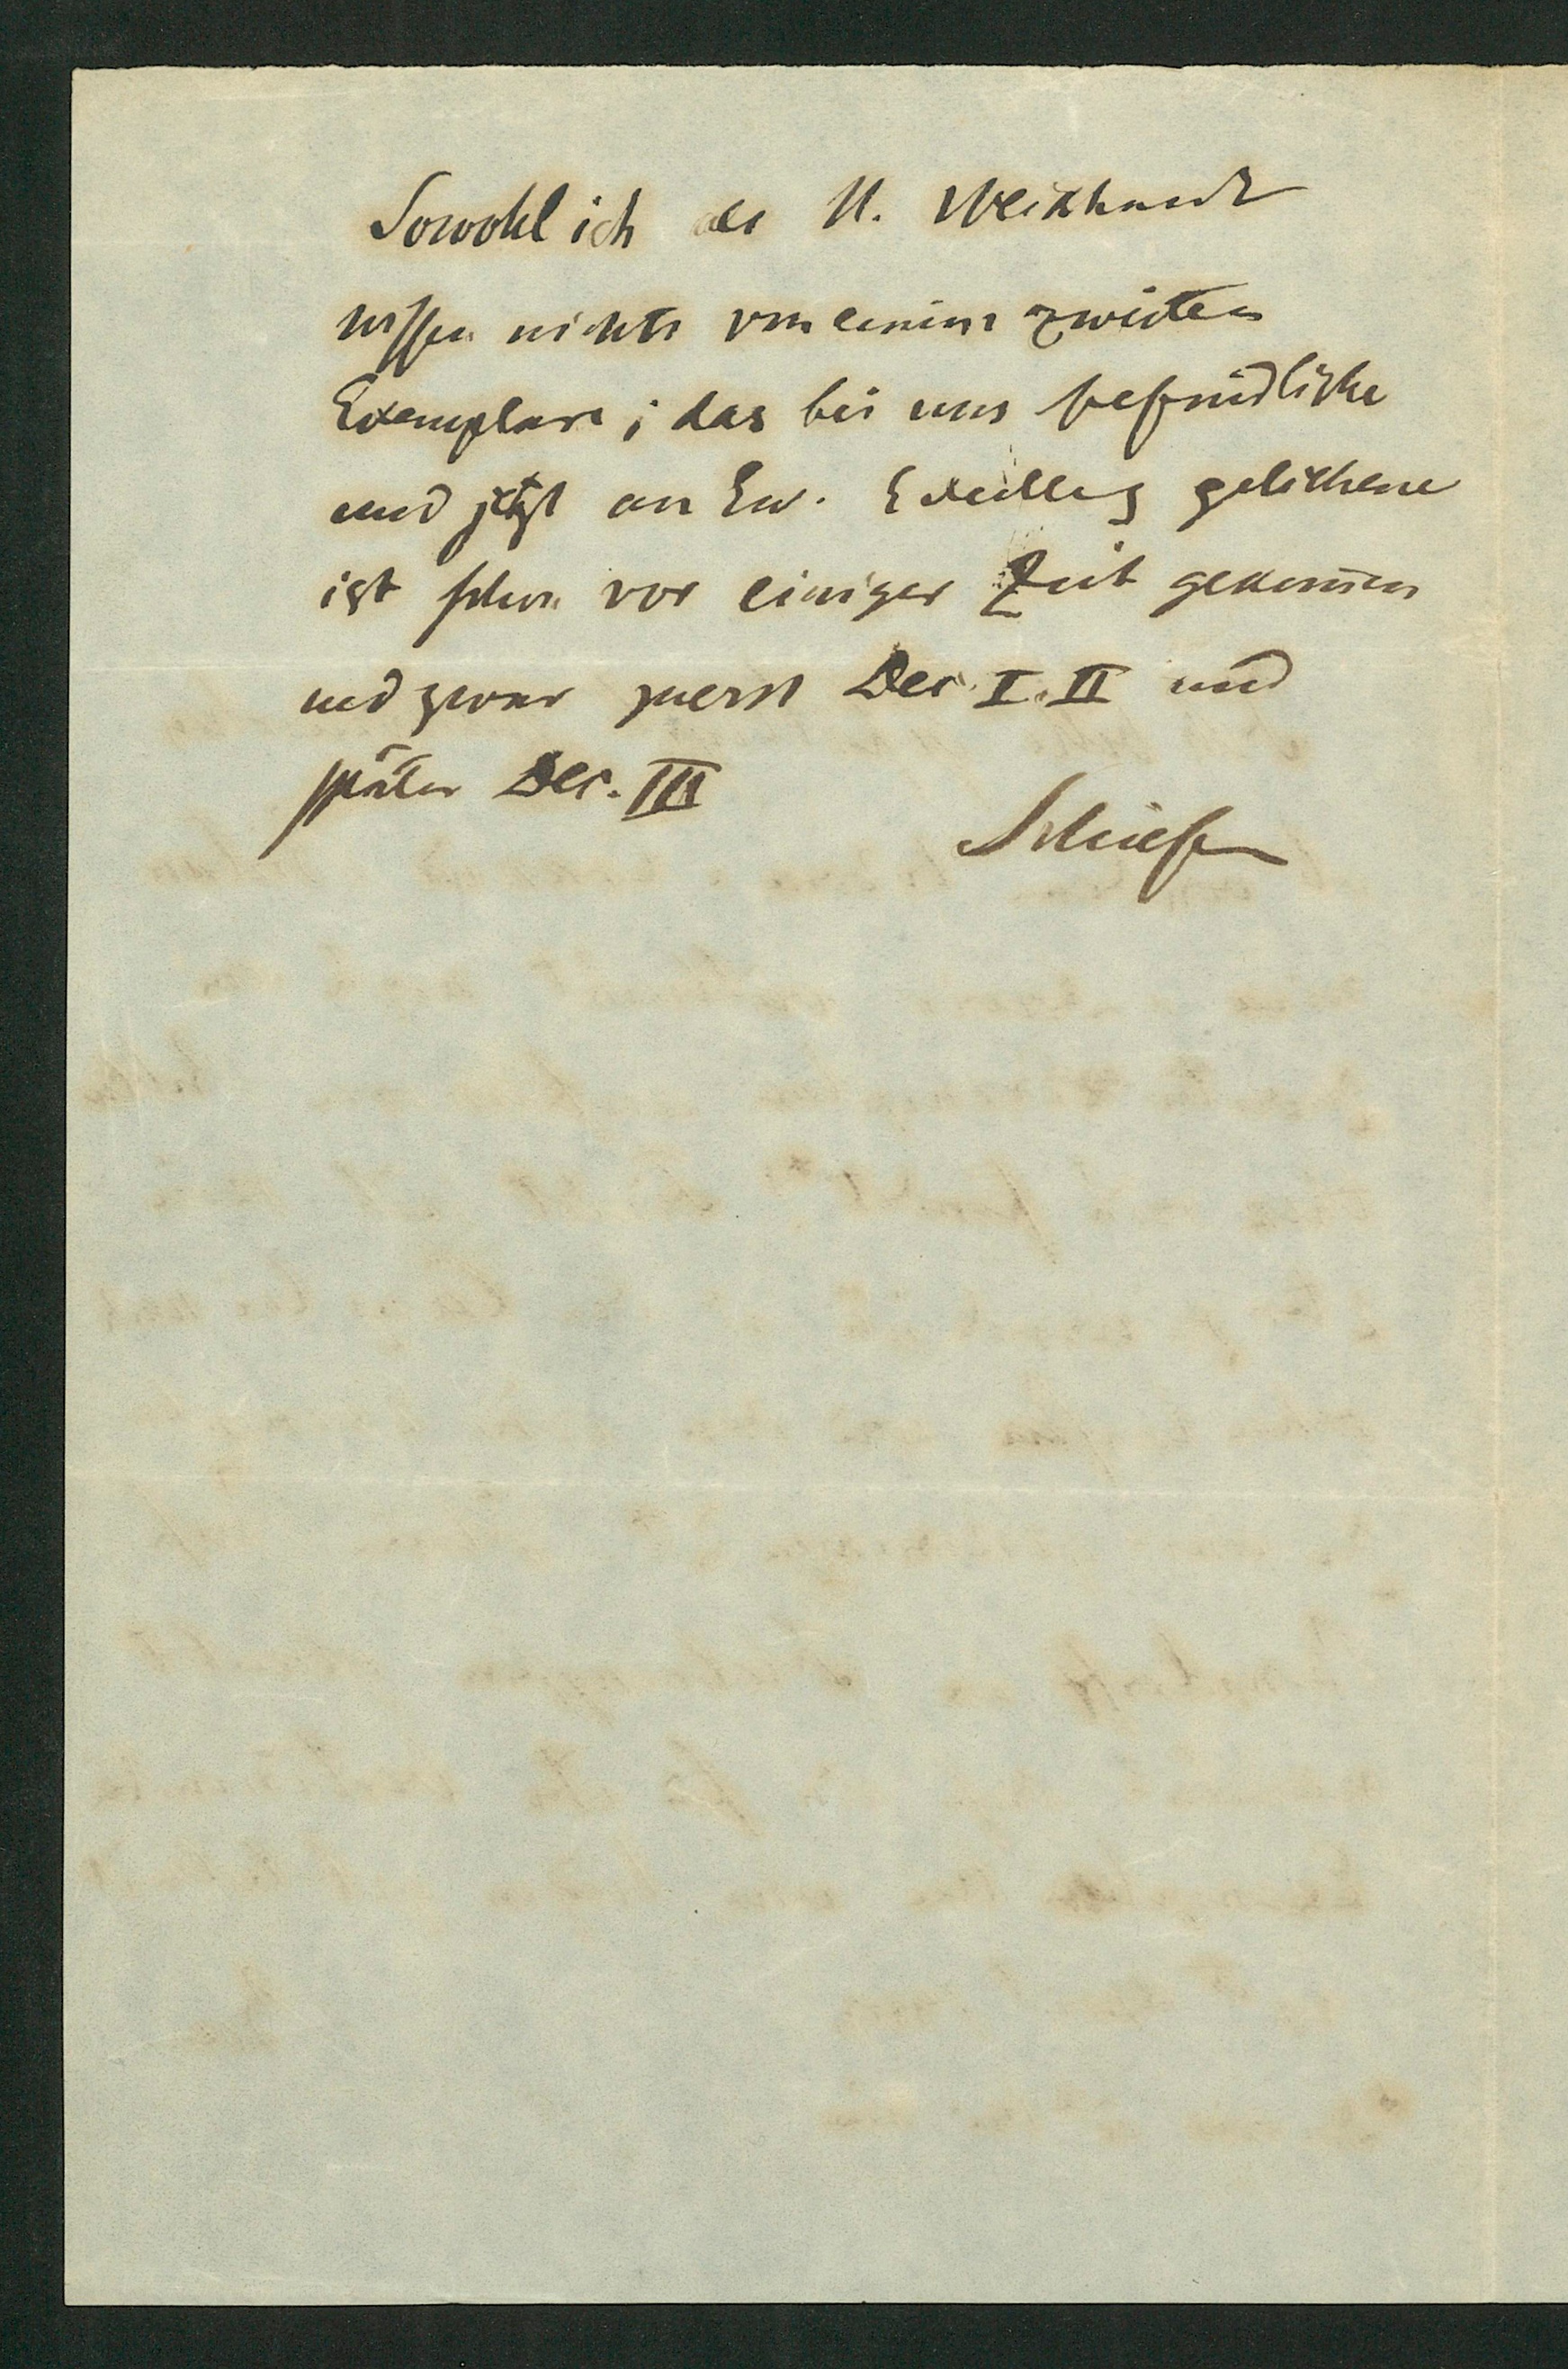 Sowohl ich als H.
wissen nichts von einem zweiten
Exemplare; das bei uns befindliche
und jetzt an Ew. Excellenz geliehene
ist schon vor einiger Zeit gekom̅en
und zwar zuerst Dec. I. II und
später Dec. III
Schiefn